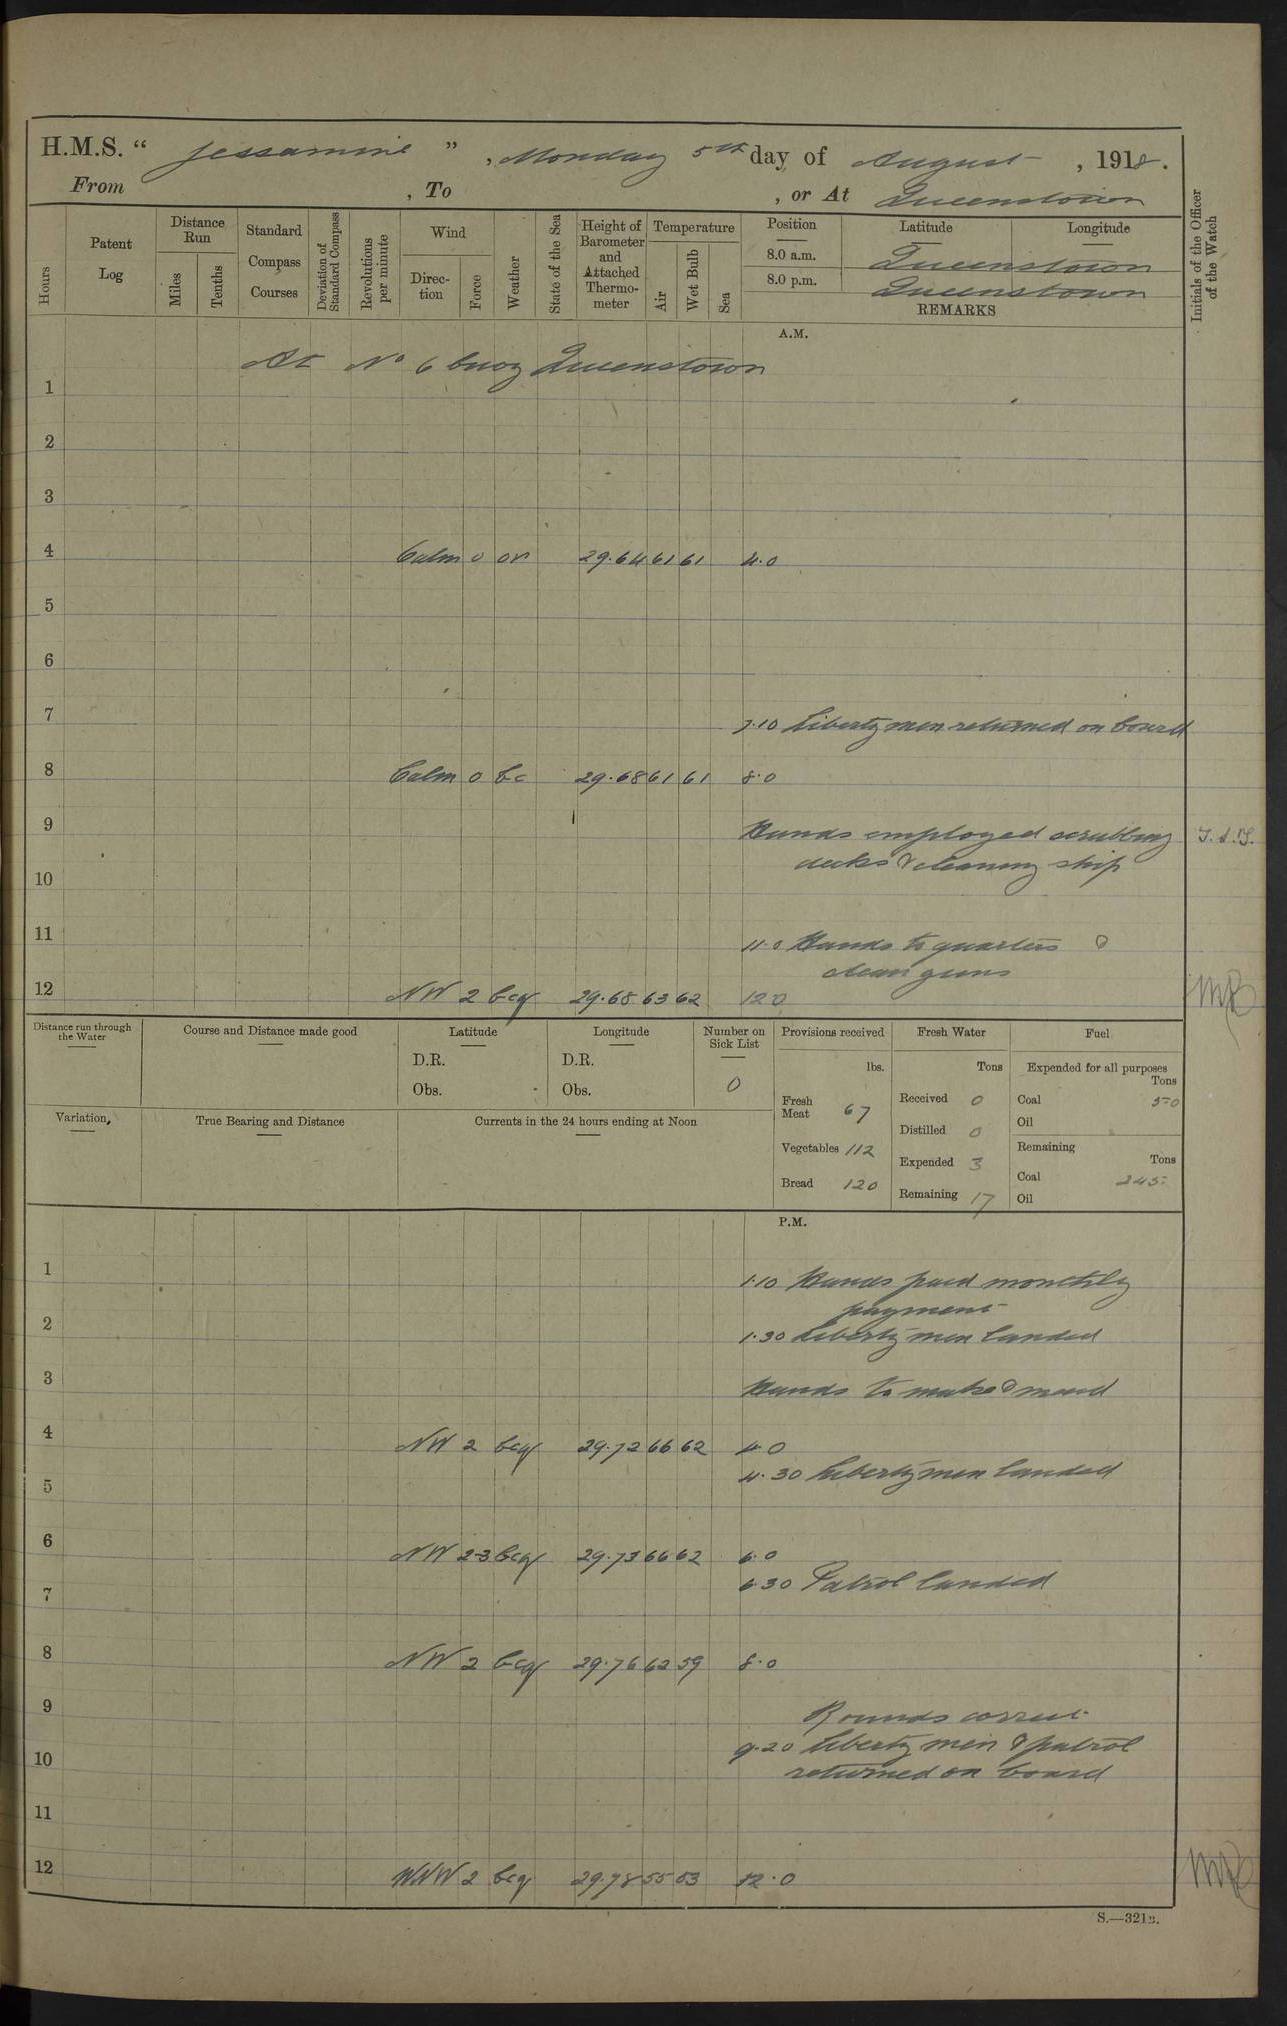 H.M.S. “ Jessamine ” , Monday 5th day of August , 1918.
From , To , or At Queenstown
Hours
Patent Log
Distance Run
Miles
Tenths
Standard Compass Courses
Deviation of Standard Compass
Revolutions per minute
Wind
Direction
Force
Weather
State of the Sea
Height of Barometer and Attached Thermometer
Temperature
Air
Wet Bulb
Sea
Position Latitude Longitude
8.0 a.m. Queenstown
8.0 p.m. Queenstown
REMARKS
Initials of the Officer of the Watch
A.M.
At No 6 buoy Queenstown
1
2
3
4 Calm 0 or 29.64 61 61 4.0
5
6
7 7.10 Liberty men returned on board
8 Calm 0 bc 29.68 61 61 8.0
9 Hands employed scrubbing
decks & cleaning ship
10
11 11.0 Hands to quarters &
clean guns
12 NW 2 bcq 29.68 63 62 12.0
Distance run through the Water
Course and Distance made good
Latitude
D.R.
Obs.
Longitude
D.R.
Obs.
Number on Sick List
0
Variation,
True Bearing and Distance
Currents in the 24 hours ending at Noon
Provisions received
lbs.
Fresh Meat 67
Vegetables 112
Bread 120
Fresh Water
Tons
Received 0
Distilled 0
Expended 3
Remaining 17
Fuel
Expended for all purposes
Tons
Coal 5.0
Oil
Remaining
Tons
Coal 245
Oil
P.M.
1 1.10 Hands paid monthly
payment
2 1.30 Liberty men landed
3 Hands to make & mend
4 NW 2 bcq 29.72 66 62 4.0
4.30 Liberty men landed
5
6 NW 2-3 bcq 29.73 66 62 6.0
6.30 Patrol landed
7
8 NW 2 bcq 29.76 62 59 8.0
9 Rounds correct
9.20 Liberty men & patrol
10 returned on board
11
12 WNW 2 bcq 29.78 55 53 12.0
S.—321B.